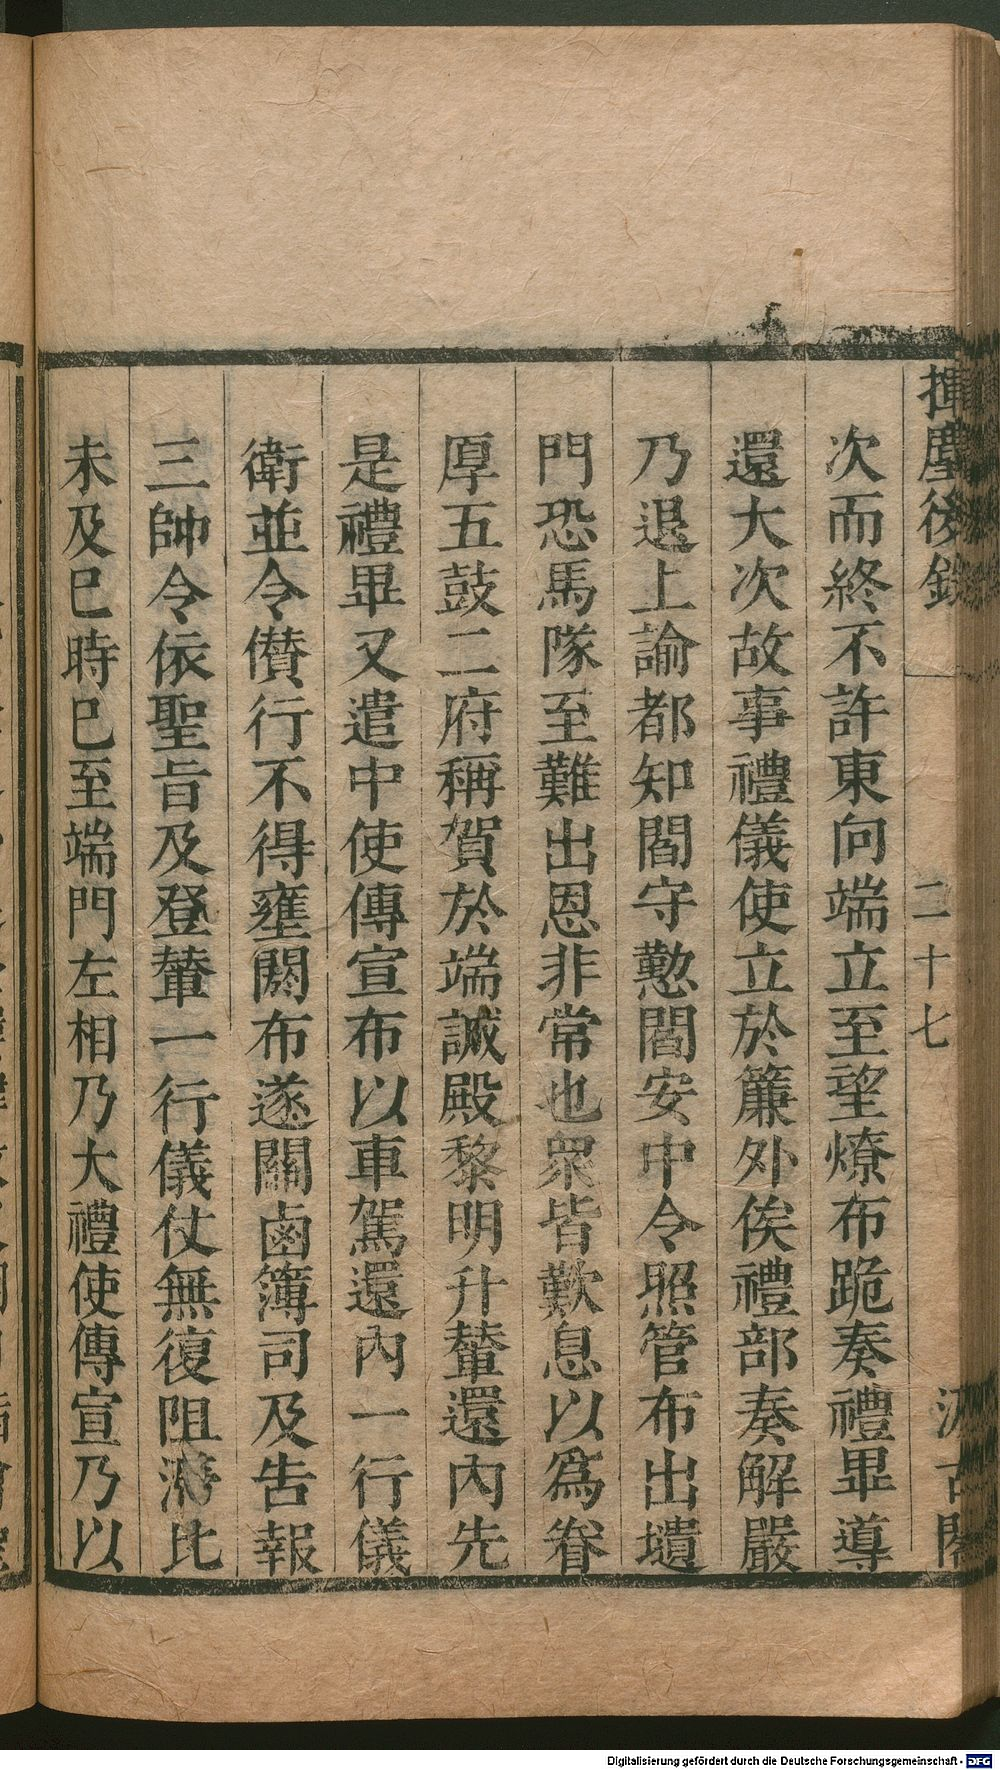 揮麈後錄
二十七
汲古閣
次而終不許東向端立至望燎布跪奏禮畢導
還大次故事禮儀使立於簾外俟禮部奏解嚴
乃退上諭都知閻守懃閻安中令照管布出壝
門恐馬隊至難出恩非常也眾皆歎息以爲眷
厚五鼓二府稱賀於端誠殿黎明升輦還內先
是禮畢又遣中使傳宣布以車駕還內一行儀
衛並令儧行不得壅閼布遂關鹵簿司及告報
三帥令依聖旨及登輦一行儀仗無復阻滯比
未及巳時巳至端門左相乃大禮使傳宣乃以
Digitalisierung gefördert durch die Deutsche Forschungsgemeinschaft - DFG